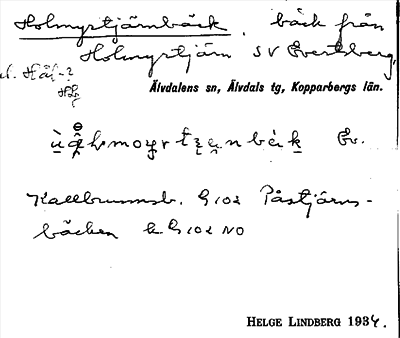 Holmyrstjärnbäck, bäck från
Holmyrstjärn SV Evertsberg,
Hål-?
Älvdalens sn, Älvdals tg, Kopparbergs län.
Ev.
Kallbrunnsb. G 102 Påstjärns-
bäcken k. G 102 NO
HELGE LINDBERG 1934.